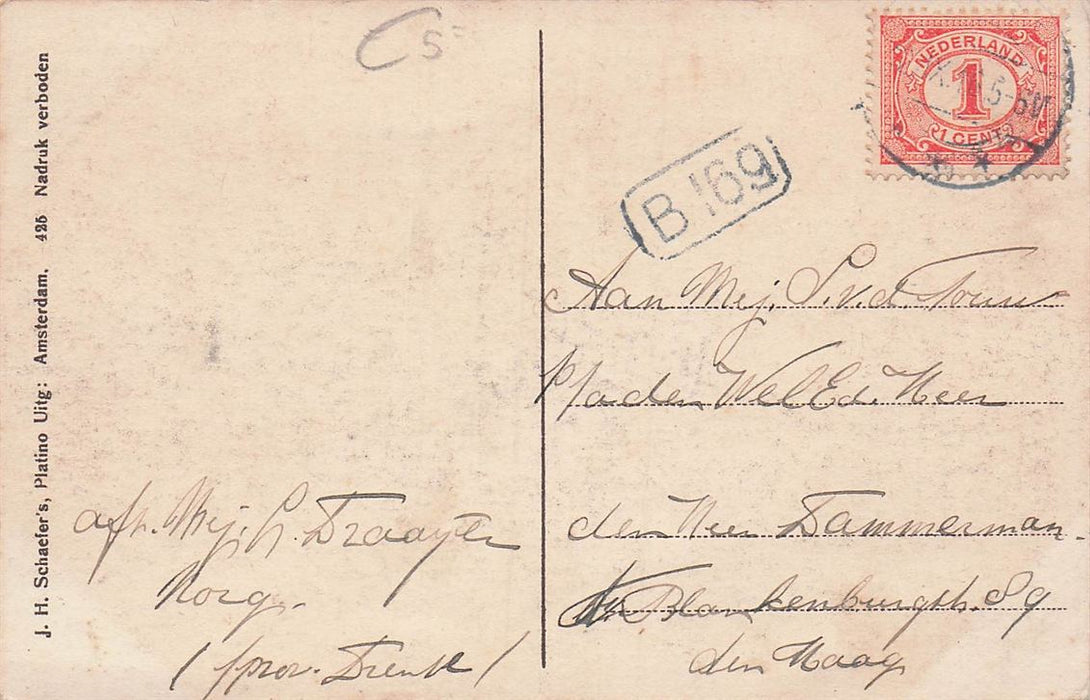 J. H. Schaefer's, Platino Uitg: Amsterdam. 425 Nadruk verboden
C 5=
NEDERLAND
1
1 CENT
5-6N
B 169
Aan Mej. S. v. d.
p/a den WelEd. Heer
den Heer Dammerman.
Blankenburgstr. 89
den Haag
afz. Mej. G. Draayer
Norg.
(prov. Drente)